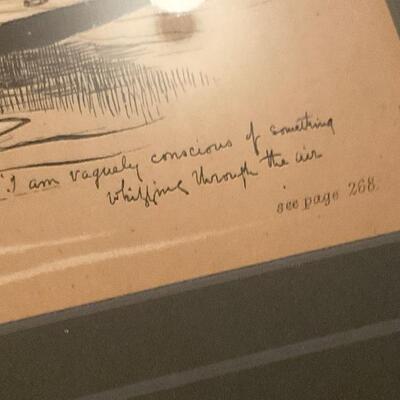 "I am vaguely conscious of something
whizzing through the air
see page 268.